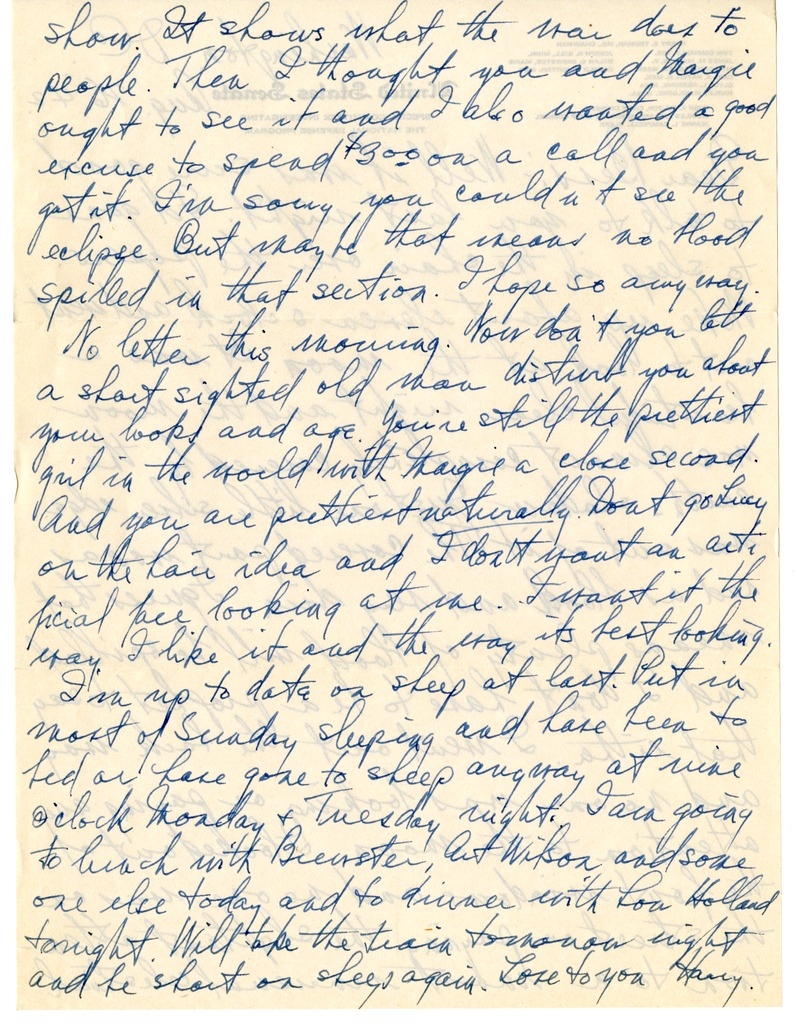 show. It shows what the war does to
people. Then I thought you and Margie
ought to see it and I also wanted a good
excuse to spend $3.00 on a call and you
got it. I'm sorry you couldn't see the
eclipse. But maybe that means no blood
spilled in that section. I hope so anyway.
No letter this morning. Now don't you let
a short sighted old man disturb you about
your looks and age. You're still the prettiest
girl in the world with Margie a close second.
And you are prettiest naturally. Don't go Lucy
on the hair idea and I don't want an arti
ficial face looking at me. I want it the
way I like it and the way its best looking.
I'm up to date on sleep at last. Put in
most of Sunday sleeping and have been to
bed or have gone to sleep anyway at nine
o'clock Monday & Tuesday night. I am going
to lunch with Brewster, Art Wilson and some
one else today and to dinner with Lou Holland
tonight. Will take the train tomorrow night
and be short on sleep again. Love to you Harry.